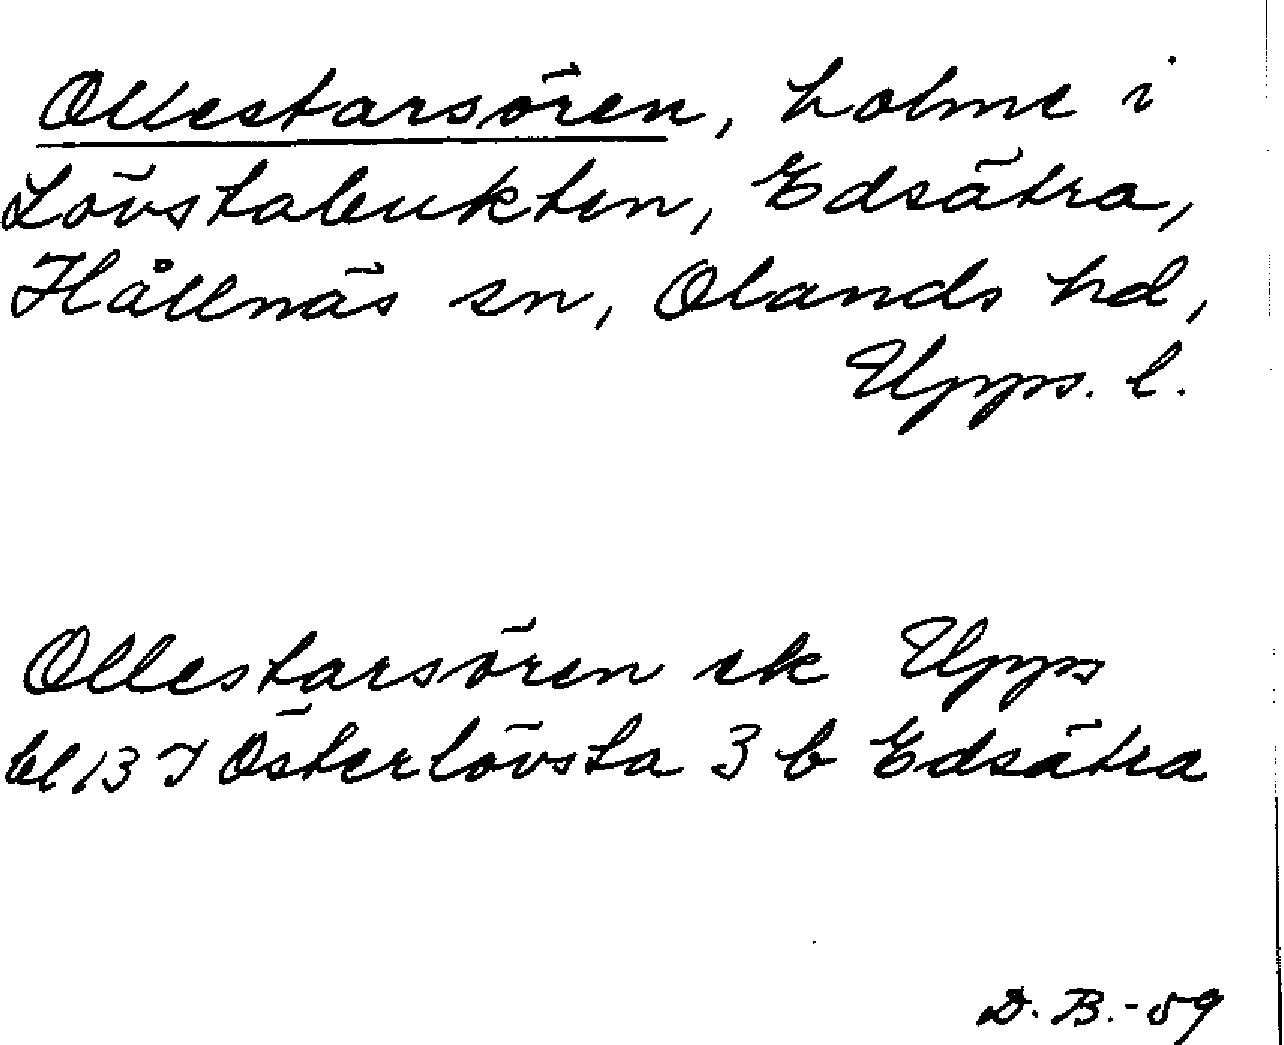 Ollestarsören, holme i
Lövstabukten, Edsätra,
Hållnäs sn, Olands hd,
Upps. l.
Ollestarsören ek Upps
bl 13 I Österlövsta 3 b Edsätra
D. B. - 59